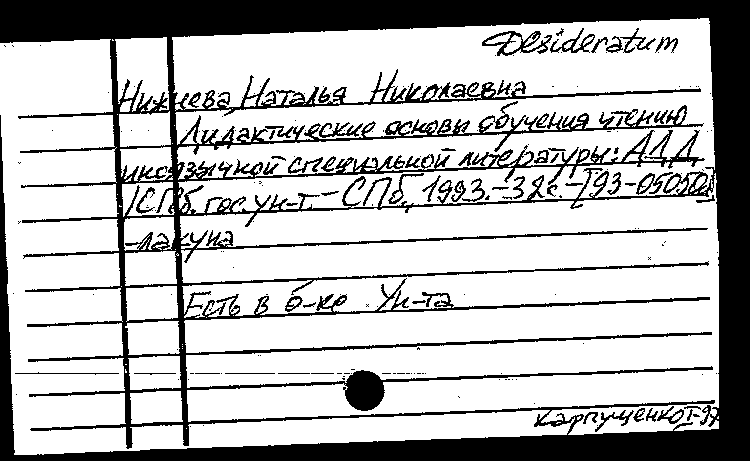 Desideratum
Нижнева, Наталья Николаевна
Дидактические основы обучения чтению
иноязычной специальной литературы: АДД
/СПб. гос. ун-т. - СПб., 1993. - 32с. - [93-05050а]
-лакуна
Есть в б-ке Ун-та
Карпущенко I-97